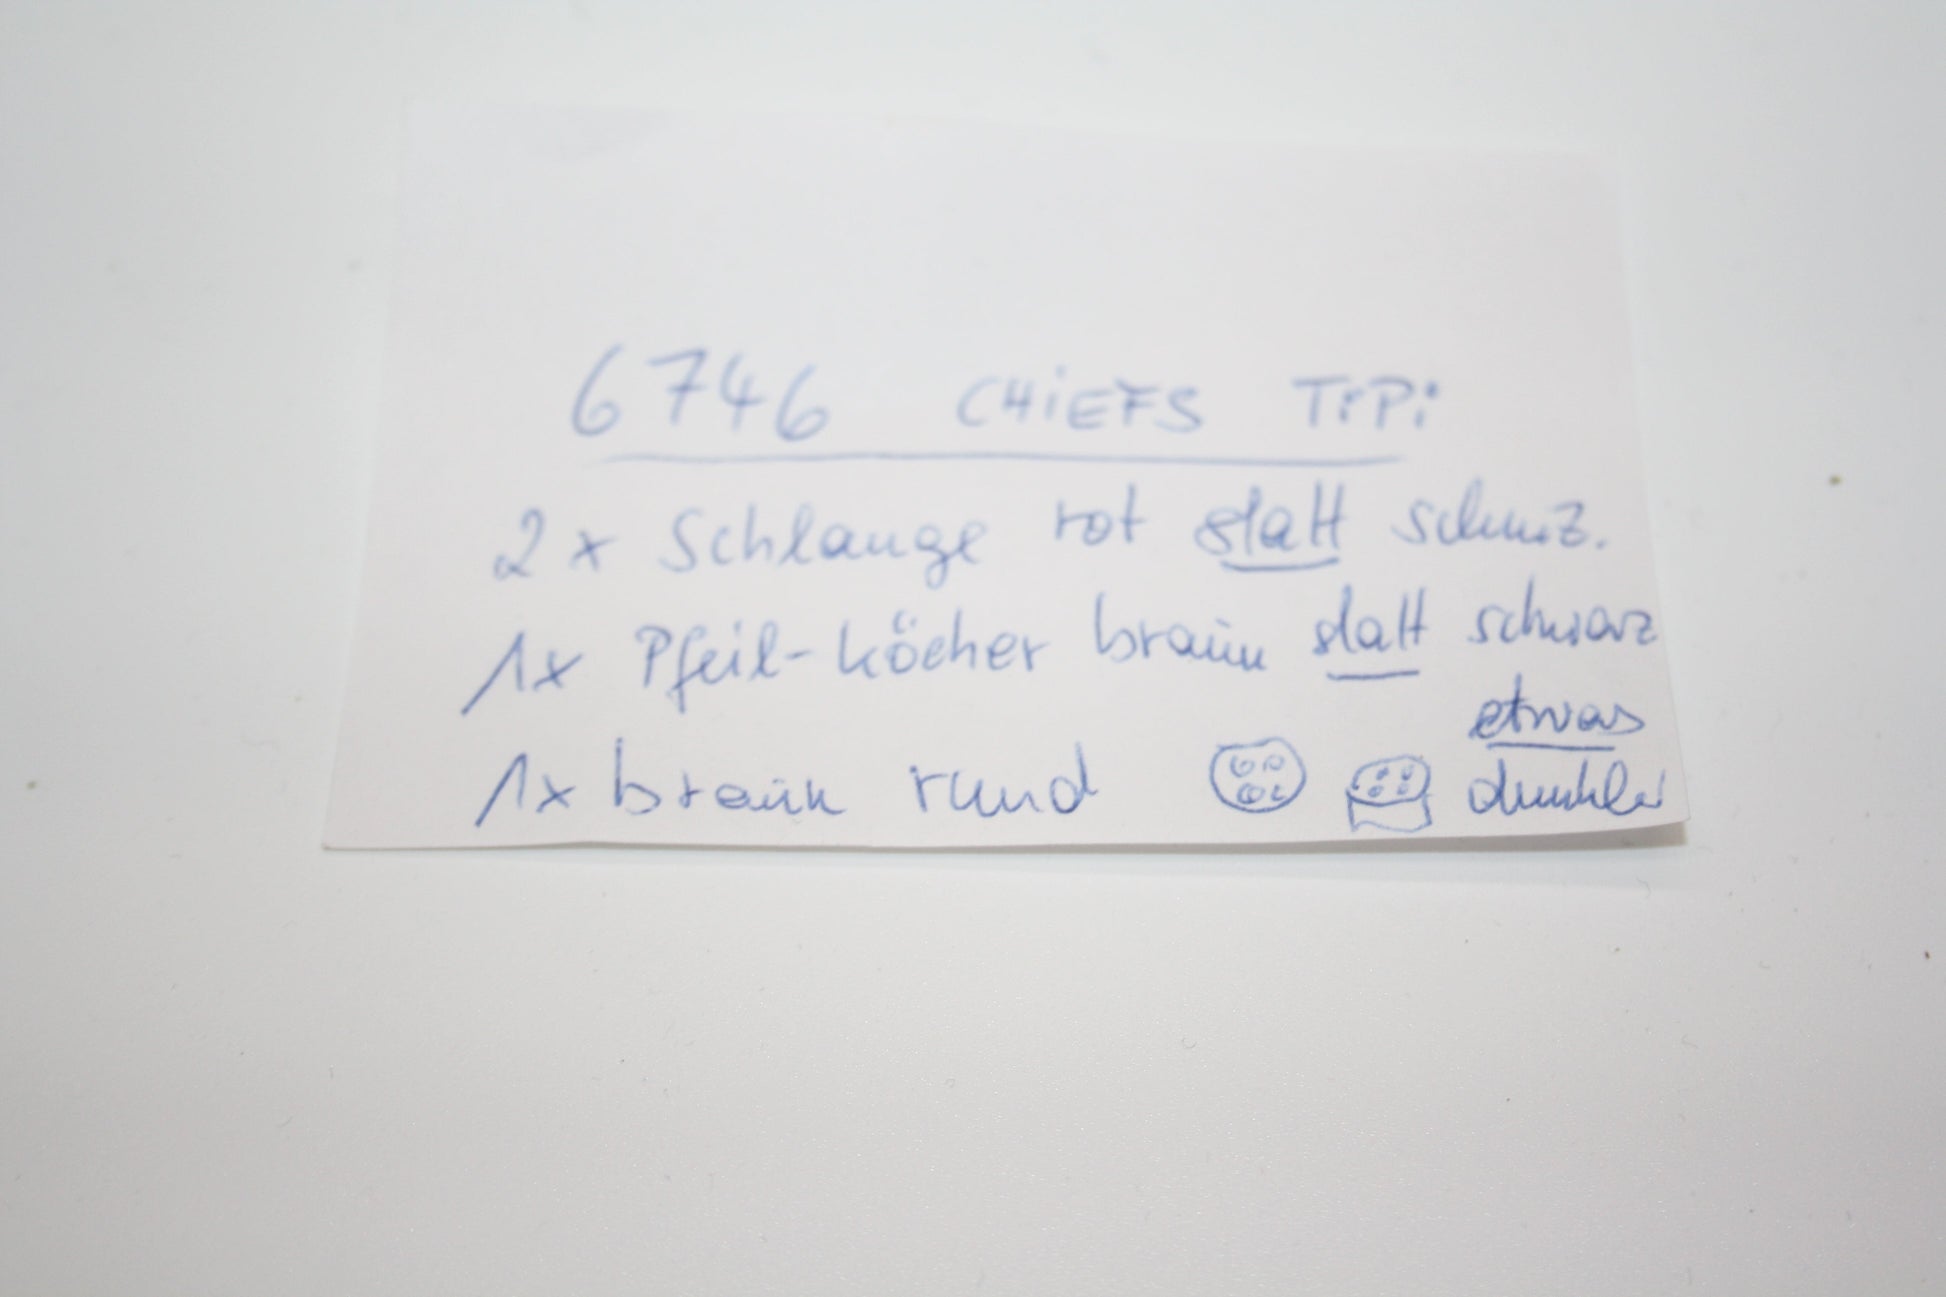 6746 CHiEFS TiPi
2x Schlange rot statt schwz.
1x Pfeil-köcher braun statt schwarz
etwas
1x braun rund dunkler